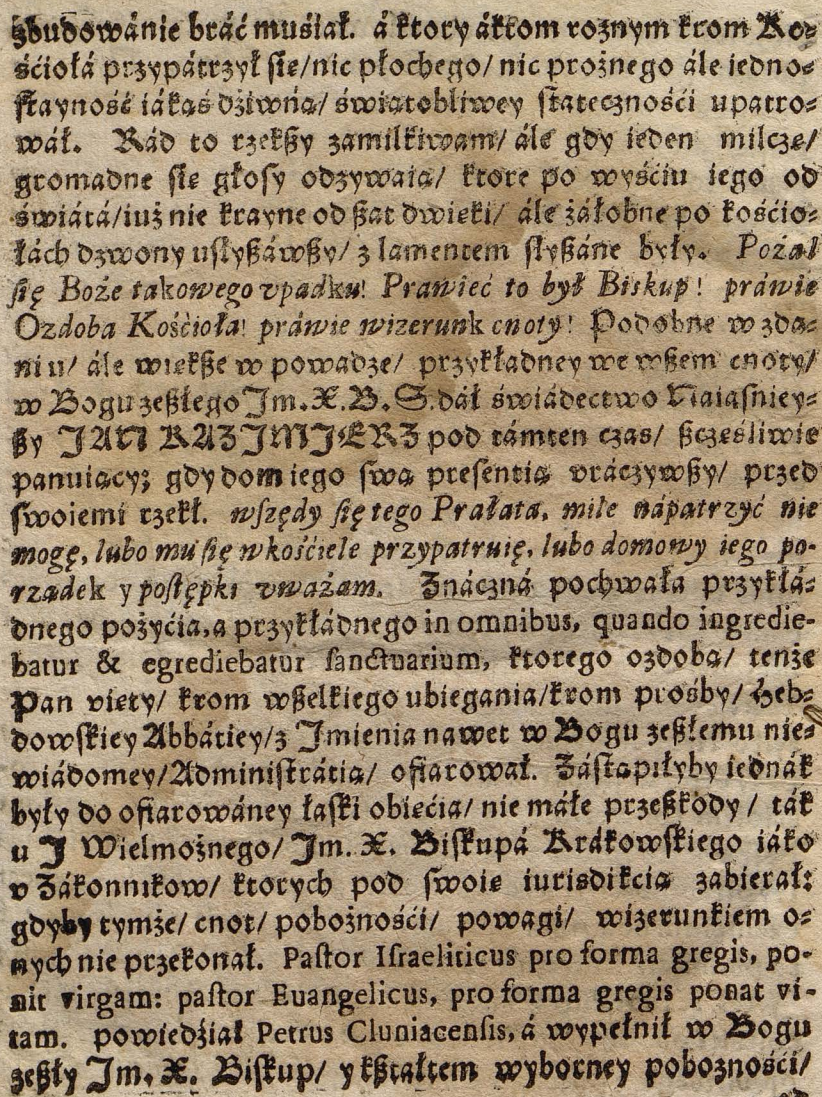 zbudowánie bráć muśiał. á ktory áktom rożnym krom Ko-
śćiołá przypátrzył się/ nic płochego/ nic prożnego ále iedno-
stáyność iákąś dźiwną/ świątobliwey státecznośći upatro-
wáł. Rad to rzekßy zamilkiwam/ ále gdy ieden milczę/
gromadne się głosy odzywaią/ ktore po wyśćiu iego od
świátá/ iuż nie krayne od ßat dwięki/ ále żáłobne po kośćio-
łách dzwony usłyßáwßy/ z lamentem słyßáne były. Pożal
się Boże takowego vpadku! Prawieć to był Biskup! práwie
Ozdoba Kośćioła! práwie wizerunk cnoty! Podobne w zda-
niu/ ále większe w powadze/ przykładney we wßem cnoty/
w Bogu zeßłego Jm. X. B. S. dáł świádectwo Naiaśniey-
ßy JAN KAZJMJERZ pod támten czas/ ßczęśliwie
panuiący; gdy dom iego swą presentią vráczywßy/ przed
swoiemi rzekł. wszędy się tego Prałata, mile nápatrzyć nie
mogę, lubo mu się w kośćiele przypatruię, lubo domowy iego po-
rządek y postępki vważam. Znáczná pochwała przykłá-
dnego pożyćia, a przykłádnego in omnibus, quando ingredie-
batur & egrediebatur sanctuarium, ktorego ozdobą/ tenże
Pan viety/ krom wßelkiego ubiegania/ krom prośby/ Heb-
dowskiey Abbátiey/ z Jmienia nawet w Bogu zeßłemu nie-
wiádomey/ Administrátią/ ofiarował. Zástąpiłyby iednák
były do ofiarowáney łaski obięćia/ nie máłe przeßkody/ ták
u J Wielmożnego/ Jm. X. Biskupá Krákowskiego iáko
v Zákonnikow/ ktorych pod swoię iurisdikcią zabierał:
gdyby tymże/ cnot/ pobożnośći/ powagi/ wizerunkiem o-
nych nie przekonał. Pastor Israeliticus pro forma gregis, po-
nit virgam: pastor Euangelicus, pro forma gregis ponat vi-
tam. powiedźiał Petrus Cluniacensis, á wypełnił w Bogu
zeßły Jm. X. Biskup/ y kßtałtem wyborney pobożnośći/